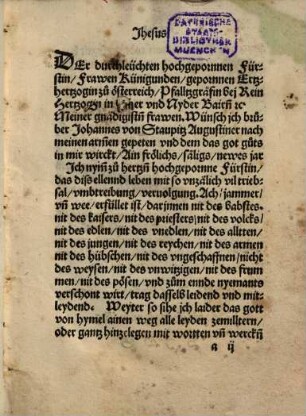 Jhesus
BAYERISCHE
STAATS-
BIBLIOTHEK
MUENCHEN
DEr durchleüchten hochgepornnen Für
stin/ Frawen Künigunden/ gepornnen Ertz
hertzogin zů österreich/ Pfaltzgräfin bei Rein
Hertzogin in Ober vnd Nyder Bairñ ꝛc
Meiner gnädigistñ frawen. Wünsch ich brů
der Johannes von Staupitz Augustiner nach
meinen armen gepeten vnd dem das got gůts
in mir wirckt/ Ain frölichs/ säligs/ newes jar
Ich nym̃ zů hertzñ hochgeponne Fürstin/
das diß ellennd leben mit so vnzälich vil trieb-
sal/ vmbtreibung/ veruolgung. Ach/ jammer/
vñ wee/ erfüllet ist/ dariñen nit des babstes-
nit des kaisers/ nit des priesters/ nit des volcks/
nit des edlen/ nit des vnedlen/ nit des alltten/
nit des jungen/ nit des reychen/ nit des armen
nit des hübschen/ nit des vngeschaffnen/ nicht
des weysen/ nit des vnwitzigen/ nit des frum
men/ nit des pösen/ vnd zům ennde nyemants
verschont wirt/ trag dasselb leidend vnd mit-
leydend. Weyter so sihe ich laider das gott
von hymel ainen weg alle leyden zemilltern/
oder gantz hinzelegen mit wortten vñ werckñ
a ij